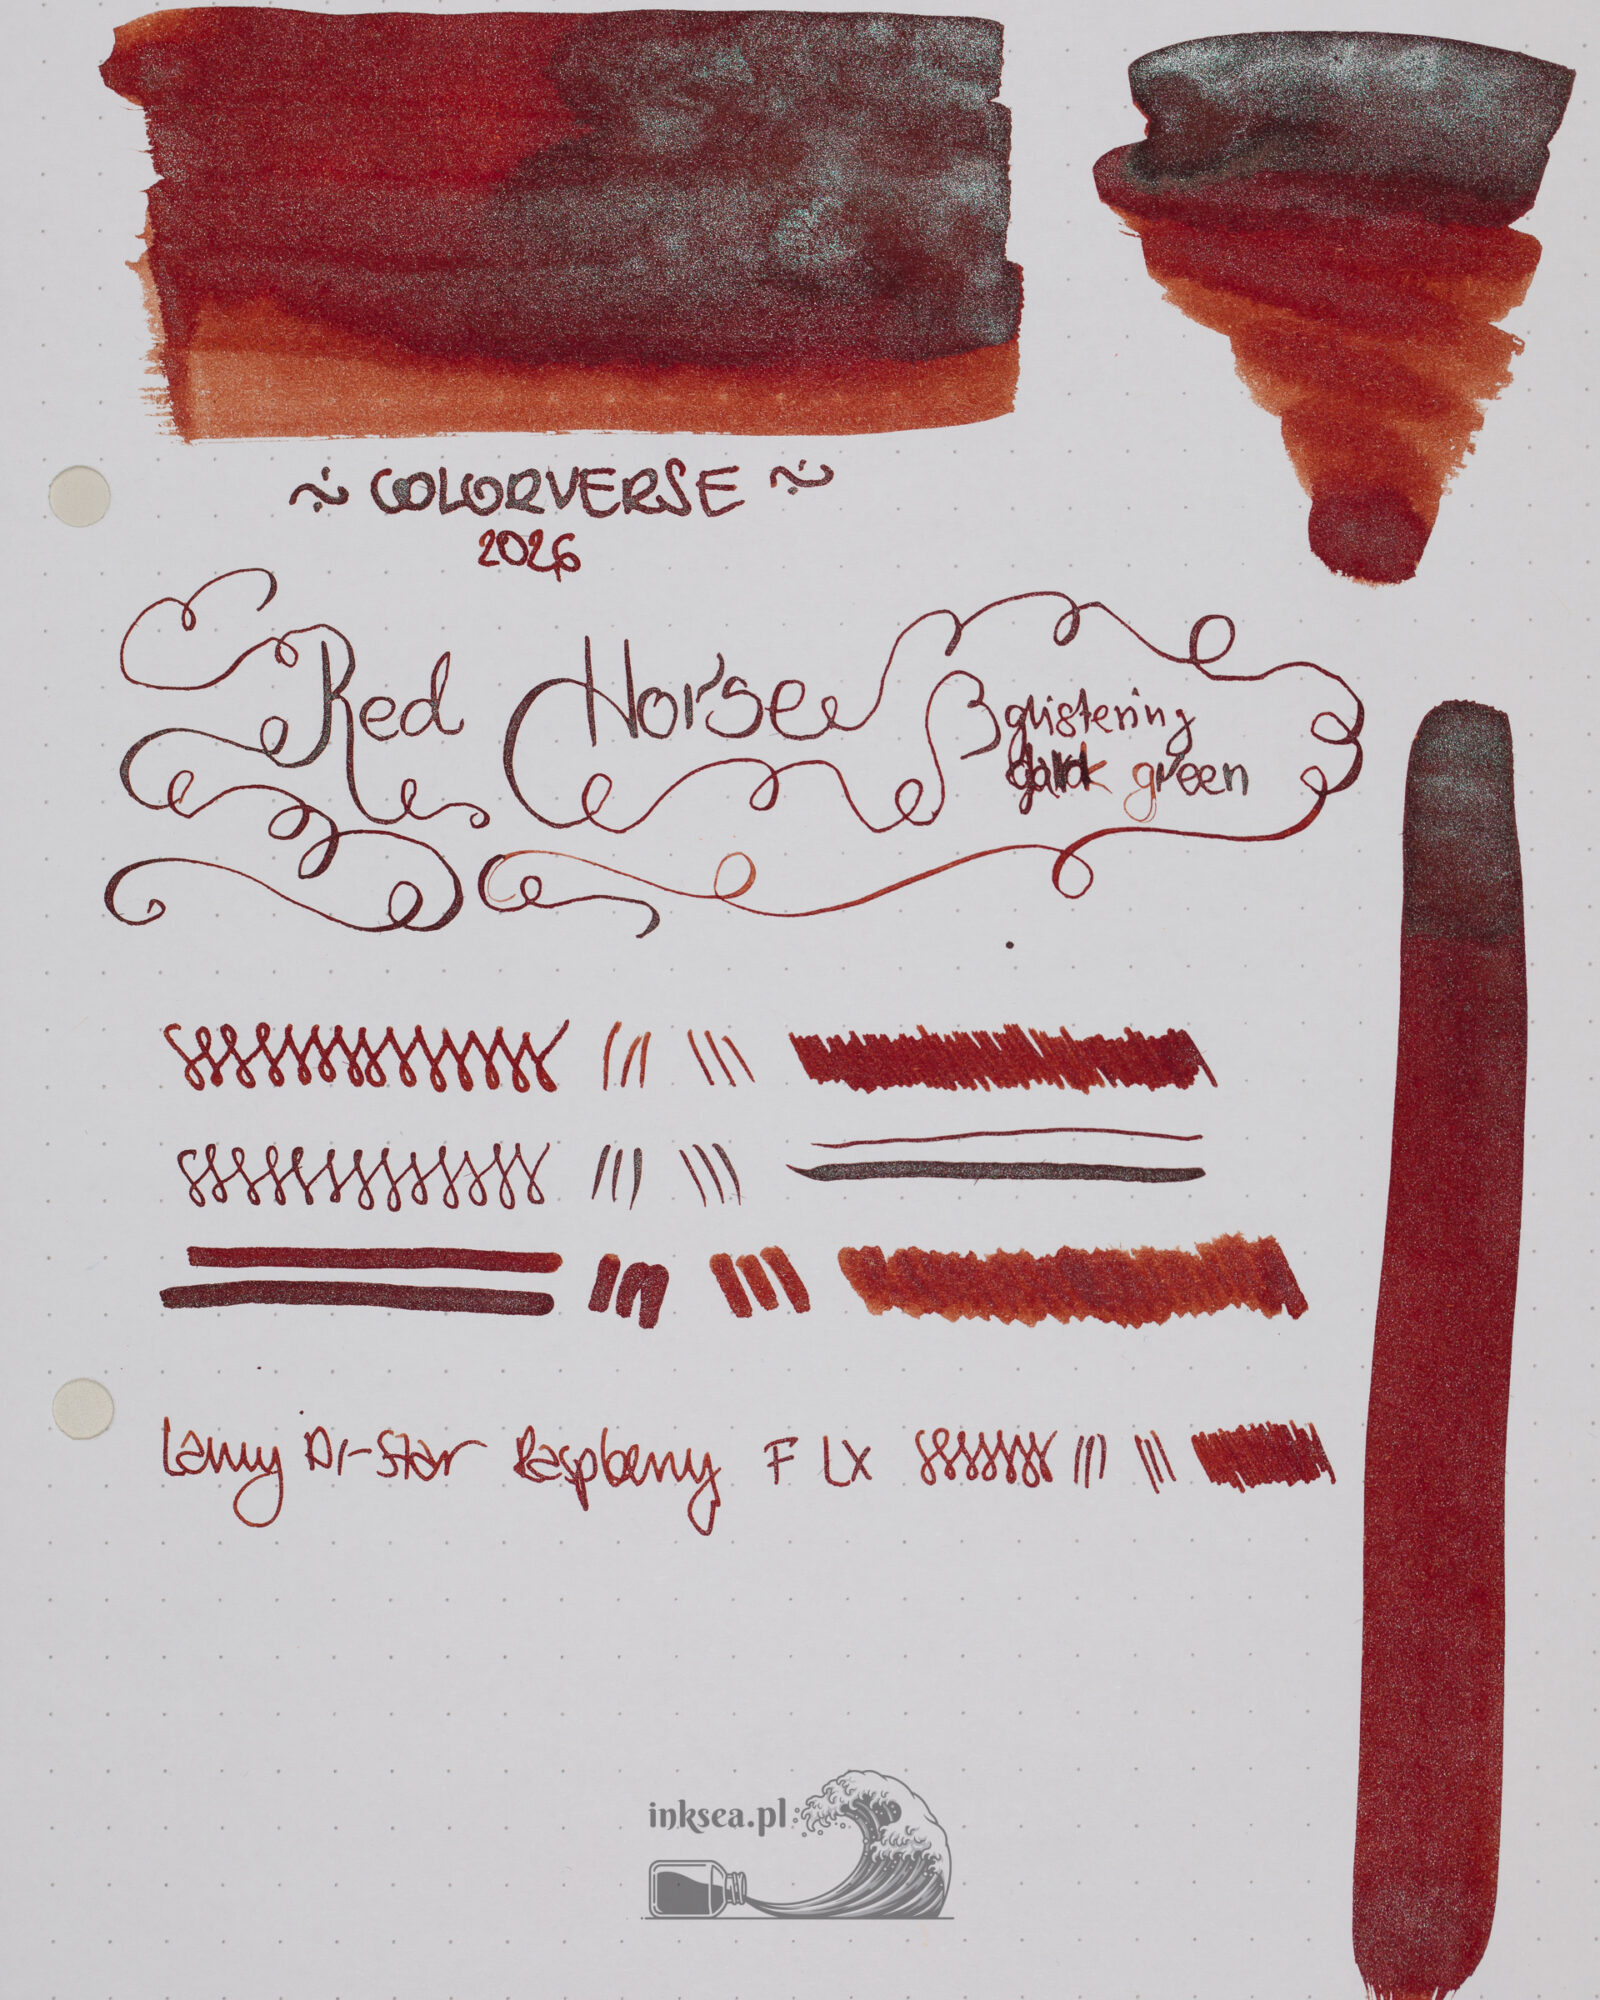 ~ COLORVERSE ~
2026
Red Horse
glistering
dark green
Lamy Al-Star Raspberry F LX
inksea.pl